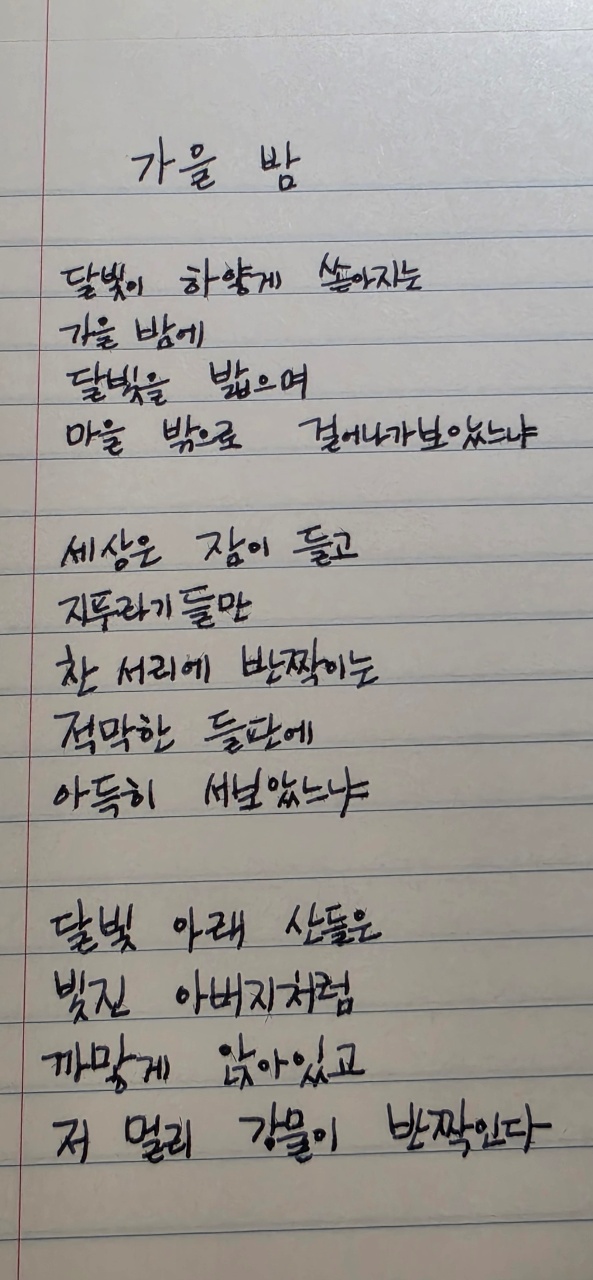 가을 밤
달빛이 하얗게 쏟아지는
가을 밤에
달빛을 밟으며
마을 밖으로 걸어나가보았느냐
세상은 잠이 들고
지푸라기들만
찬 서리에 반짝이는
적막한 들판에
아득히 서보았느냐
달빛 아래 산들은
빚진 아버지처럼
까맣게 앉아있고
저 멀리 강물이 반짝인다